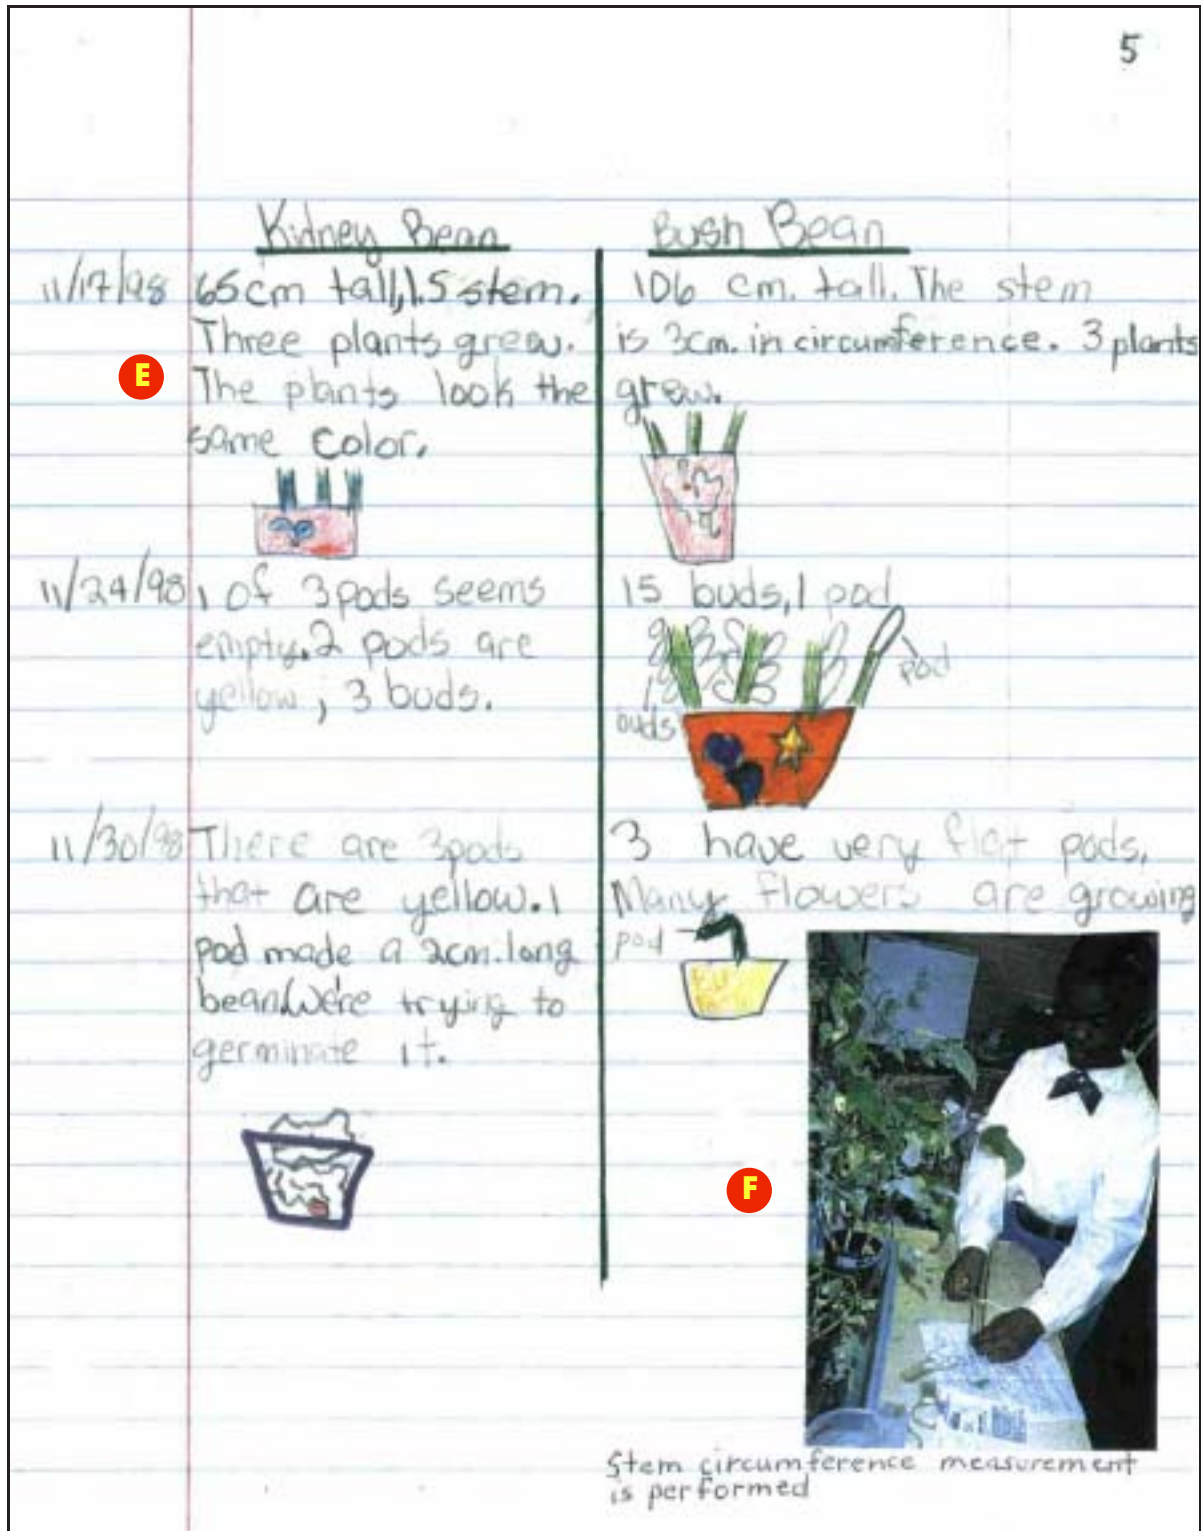 5
Kidney Bean
Bush Bean
11/17/98
65cm tall, 1.5 stem.
Three plants grew.
The plants look the
same color.
E
106 cm. tall. The stem
is 3cm. in circumference. 3 plants
grew.
11/24/98
1 of 3 pods seems
empty. 2 pods are
yellow, 3 buds.
15 buds, 1 pod
pod
buds
11/30/98
There are 3 pods
that are yellow. 1
pod made a 2cm. long
bean. We're trying to
germinate it.
3 have very flat pods.
Many flowers are growing
pod
F
Stem circumference measurement
is performed